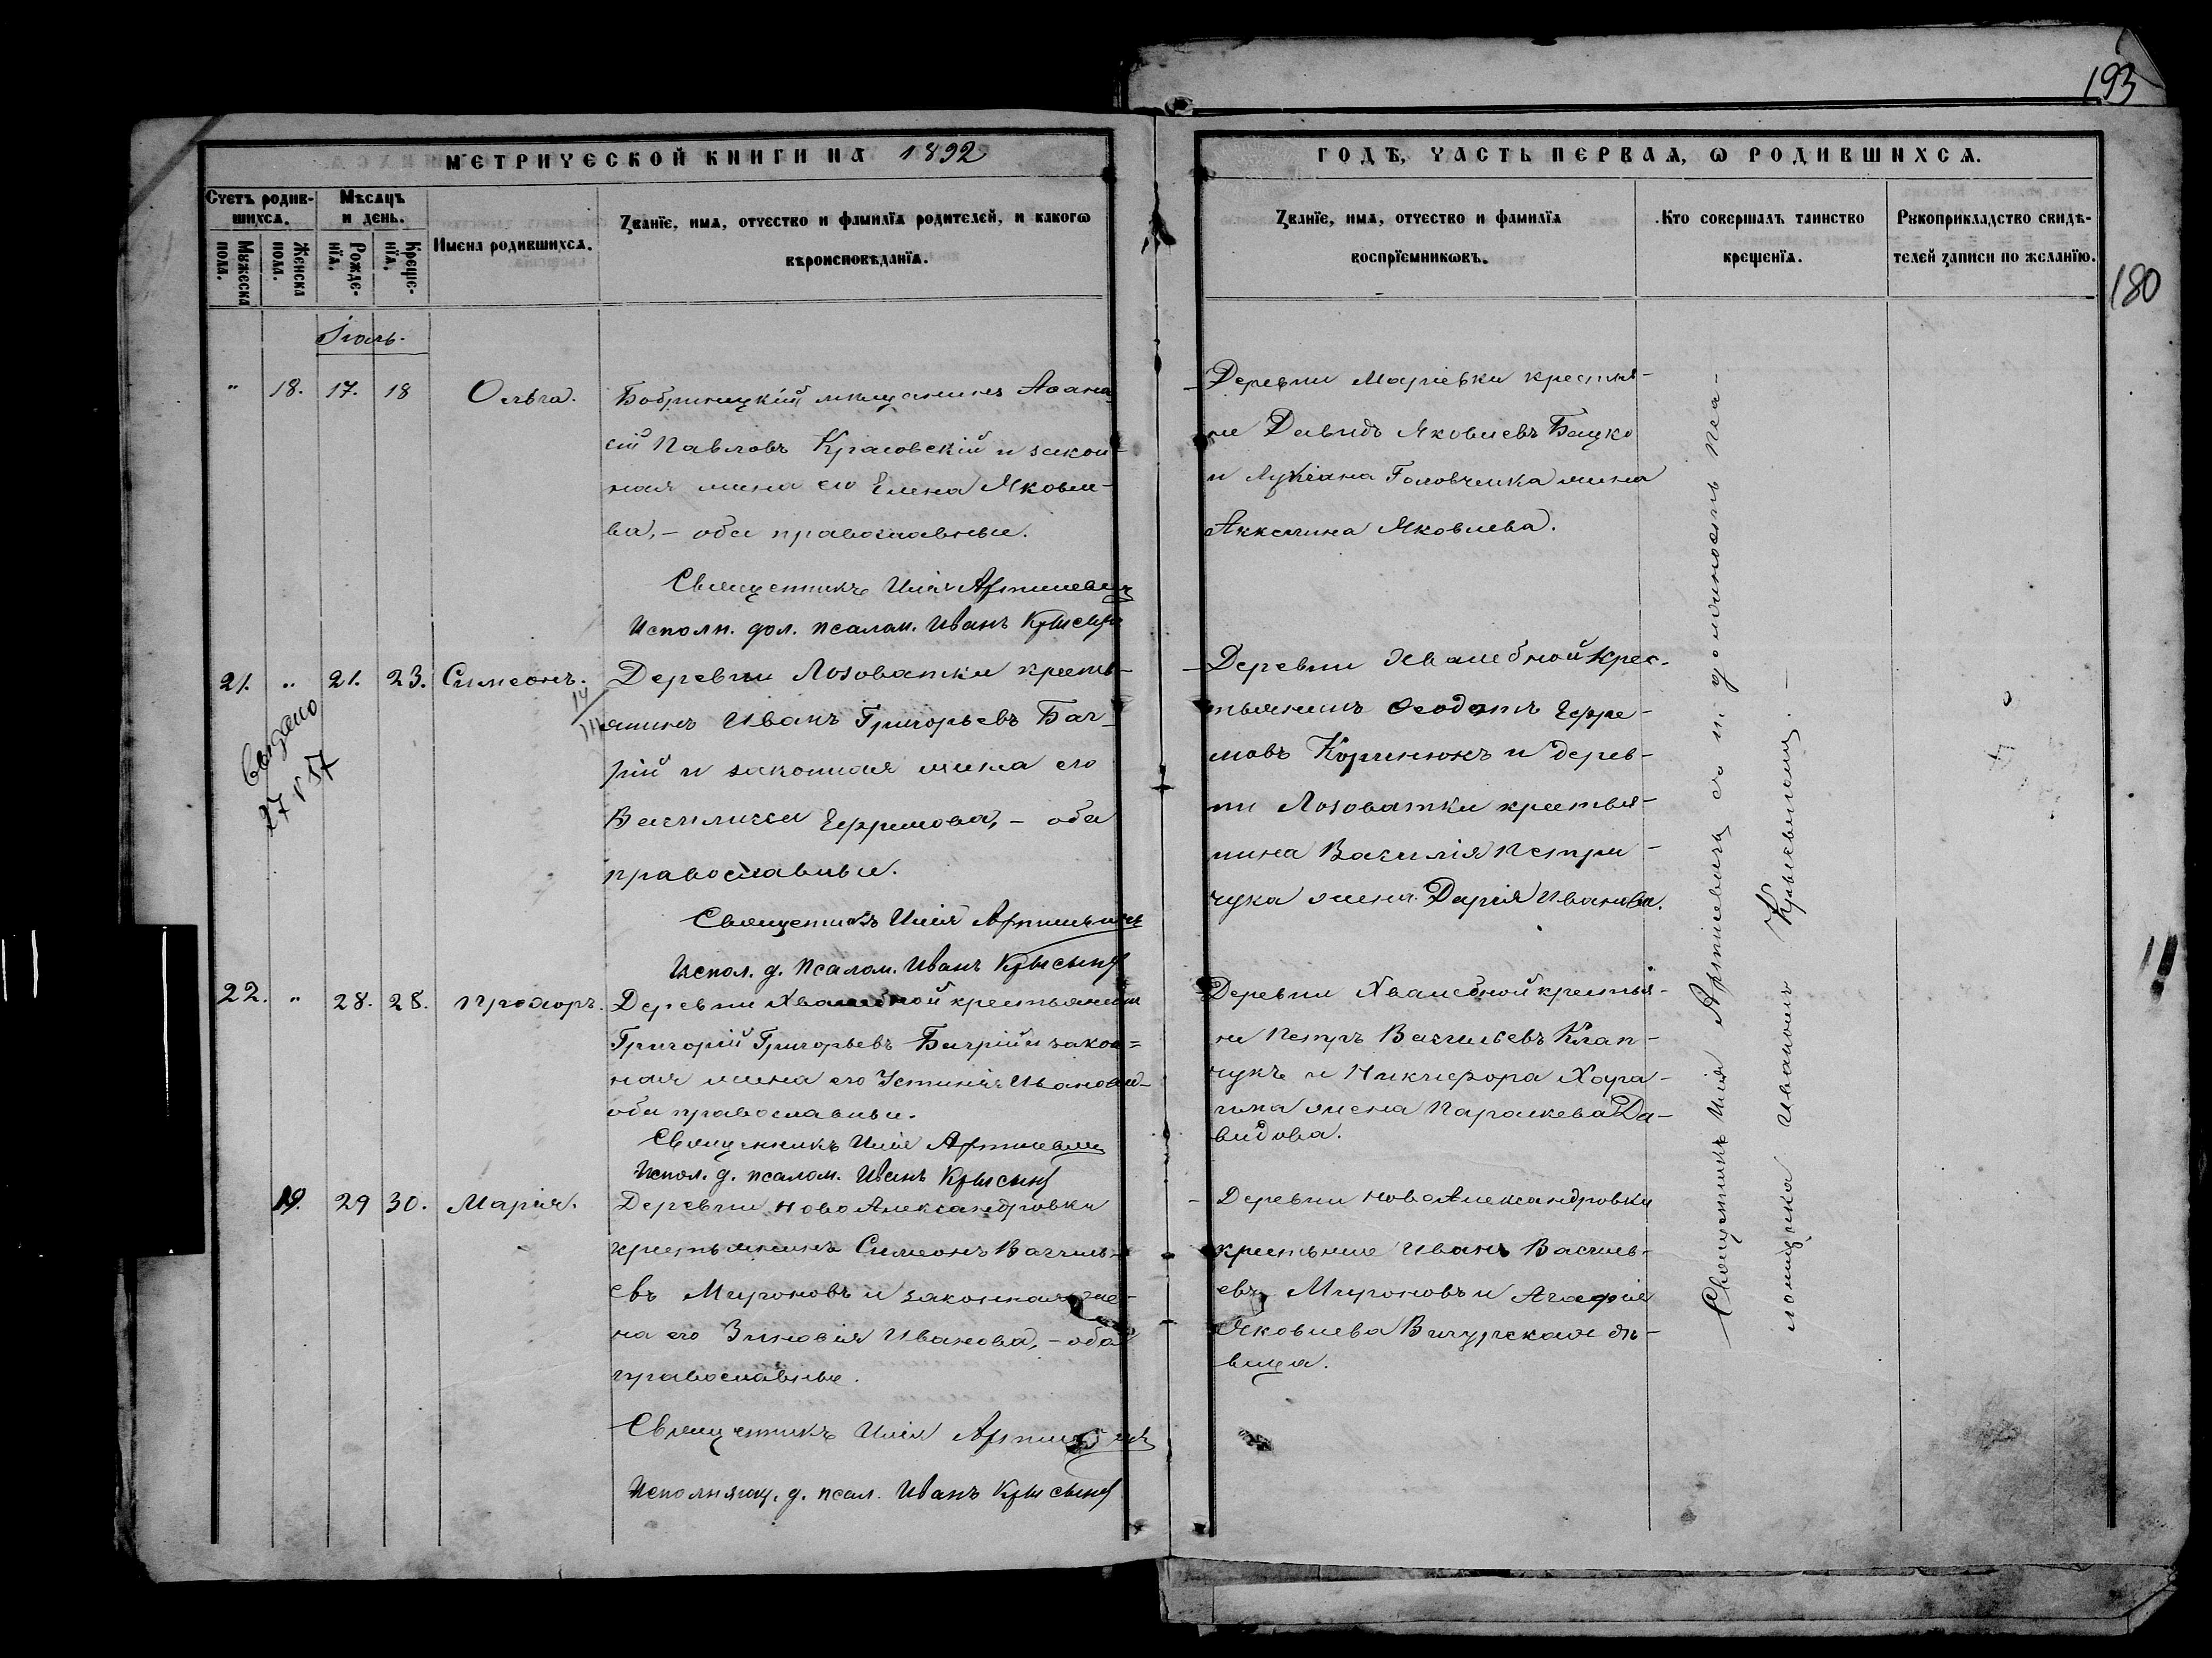 193
МЕТРИЧЕСКОЙ КНИГИ НА 1892
ГОДЪ, ЧАСТЬ ПЕРВАѦ, Ѡ РОДИВШИХСѦ.
Счетъ родив-
шихсѧ.
Мꙋжеска
пола.
Женска
пола.
Мѣсѧцъ
и день.
Рожде-
нїѧ.
Креще-
нїѧ.
Имена родившихсѧ.
Званїе, имѧ, отчество и фамилїѧ родителей, и какогѡ
вѣроисповѣданїѧ.
Званїе, имѧ, отчество и фамилїѧ
воспрїемникѡвъ.
Кто совершалъ таинство
крещенїѧ.
Рꙋкоприкладство свидѣ-
телей записи по желанїю.
180
Іюль.
" 18. 17. 18 Ольга.
Бобринецкій мѣщанинъ Аѳана-
сій Павловъ Красовскій и закон-
ная жена его Елена Яковле-
ва, – оба православные.
Священникъ Илія Артишевичъ
Исполн. дол. псалом. Иванъ
Деревни Маріевки крестья-
не Давидъ Яковлевъ Бацко
и Лукіана Головченка жена
Яковлева.
21. " 21. 23. Симеонъ.
Выдано
27 V 37
Деревни Лозоватки кресть-
янинъ Иванъ Григорьевъ Баг-
рій и законная жена его
Василисса Ефремова, – оба
православные.
Священникъ Илія Артишевичъ
Испол. д. псалом. Иванъ
Деревни Хвалебной крес-
тьянинъ Ѳеодотъ Ефре-
мовъ Корнинюкъ и дерев-
ни Лозоватки крестья-
нина Василія Петри-
чука жена Дарія Иванова.
22. " 28. 28. Прохоръ.
Деревни Хвалебной крестьянинъ
Григорій Григорьевъ Багрій и закон=
ная жена его Устинія Иванова –
оба православные.
Священникъ Илія Артишевичъ
Испол. д. псалом. Иванъ
Деревни Хвалебной крестья-
не Петръ Васильевъ Клап-
чукъ и Никифора
жена Параскева Да-
видова.
19. 29 30. Марія.
Деревни Ново Александровки
крестьянинъ Симеонъ Василь-
евъ Мироновъ и законная же-
на его Зиновія Иванова, – оба
православные.
Священникъ Илія Артишевичъ
Исполняющ. д. псал. Иванъ
Деревни Ново Александровки
крестьяне Иванъ Василь-
евъ Мироновъ и Агафія
Яковлева дѣ-
вица.
Священникъ Илія Артишевичъ съ и. должность пса-
ломщика Иваномъ